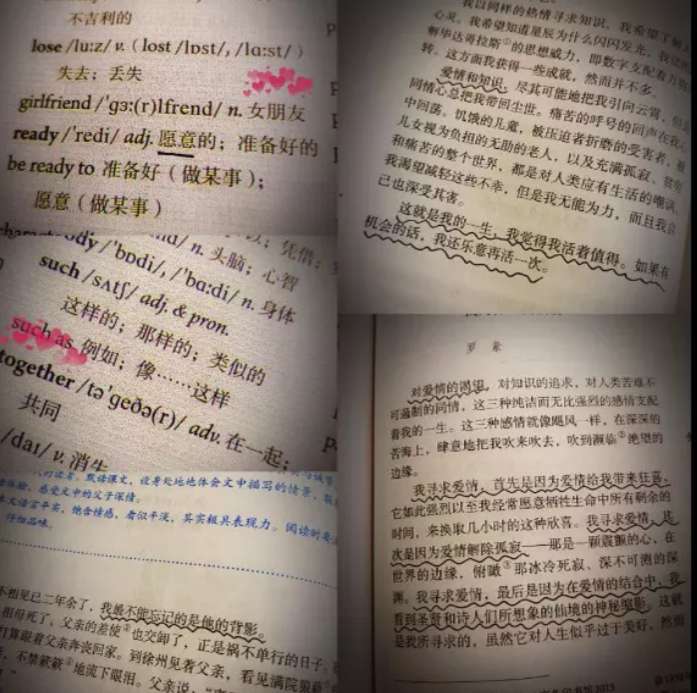 不吉利的
lose /luːz/ v. (lost /lɒst/, /lɑːst/)
失去；丢失
girlfriend /'gɜː(r)lfrend/ n. 女朋友
ready /'redi/ adj. 愿意的；准备好的
be ready to 准备好（做某事）；
愿意（做某事）
凭借；
n. 头脑；心智
body /'bɒdi/, /'bɑːdi/ n. 身体
such /sʌtʃ/ adj. & pron.
这样的；那样的；类似的
such as 例如；像……这样
together /tə'geðə(r)/ adv. 在一起；
共同
/daɪ/ v. 消失
默读课文，设身处地地体会文中描写的情景，
感受文中的父子深情。
语言平实，饱含情感，看似平淡，其实极具表现力。阅读时要
仔细品味。
不相见已二年余了，我最不能忘记的是他的背影。
祖母死了，父亲的差使也交卸了，正是祸不单行的日子。
打算跟着父亲奔丧回家。到徐州见着父亲，看见满院狼藉
不禁簌簌地流下眼泪。父亲说，
我以同样的热情寻求知识，我希望了解
心灵。我希望知道星辰为什么闪闪发光，我试
解毕达哥拉斯①的思想威力，即数字支配着万物
转。这方面我获得一些成就，然而并不多。
爱情和知识，尽其可能地把我引向云霄，但
同情心总把我带回尘世。痛苦的呼号的回声在我
中回荡。饥饿的儿童，被压迫者折磨的受害者，被
儿女视为负担的无助的老人，以及充满孤寂、贫穷
和痛苦的整个世界，都是对人类应有生活的嘲讽。
我渴望减轻这些不幸，但是我无能为力，而且我自
己也深受其害。
这就是我的一生，我觉得我活着值得。如果有
机会的话，我还乐意再活一次。
罗素
对爱情的渴望，对知识的追求，对人类苦难不
可遏制的同情，这三种纯洁而无比强烈的感情支配
着我的一生。这三种感情就像飓风一样，在深深的
苦海上，肆意地把我吹来吹去，吹到濒临②绝望的
边缘。
我寻求爱情，首先是因为爱情给我带来狂喜，
它如此强烈以至我经常愿意牺牲生命中所有剩余的
时间，来换取几小时的这种欣喜。我寻求爱情，其
次是因为爱情解除孤寂——那是一颗震颤的心，在
世界的边缘，俯瞰③那冰冷死寂、深不可测的深
渊。我寻求爱情，最后是因为在爱情的结合中，我
看到圣贤和诗人们所想象的仙境的神秘缩影。这就
是我所寻求的，虽然它对人生似乎过于美好，然而